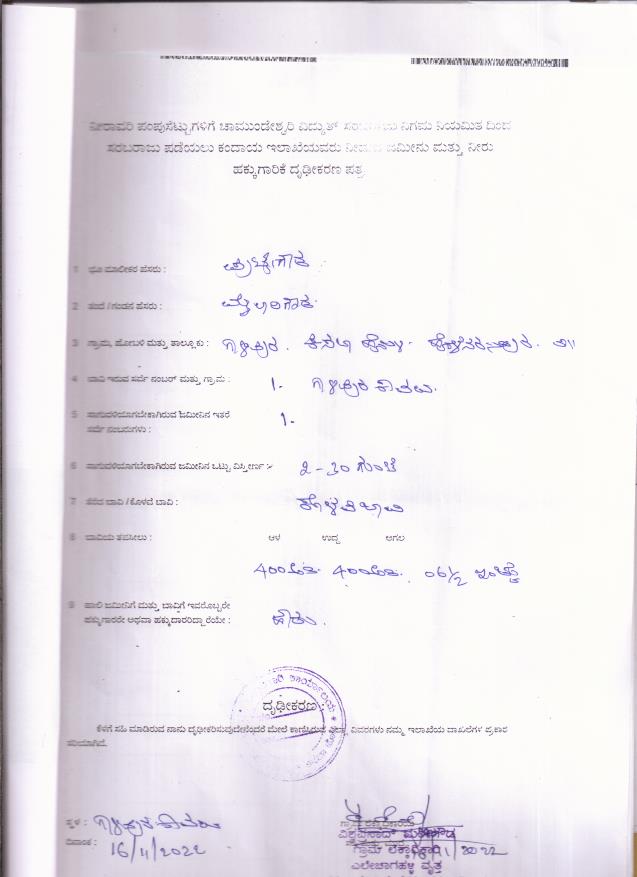 ನೀರಾವರಿ ಪಂಪುಸೆಟ್ಟುಗಳಿಗೆ ಚಾಮುಂಡೇಶ್ವರಿ ವಿದ್ಯುತ್ ಸರಬರಾಜು ನಿಗಮ ನಿಯಮಿತ ದಿಂದ
ಸರಬರಾಜು ಪಡೆಯಲು ಕಂದಾಯ ಇಲಾಖೆಯವರು ನೀಡುವ ಜಮೀನು ಮತ್ತು ನೀರು
ಹಕ್ಕುಗಾರಿಕೆ ದೃಢೀಕರಣ ಪತ್ರ
1 ಭೂ ಮಾಲೀಕರ ಹೆಸರು : ಪುಟ್ಟೇಗೌಡ
2 ತಂದೆ / ಗಂಡನ ಹೆಸರು : ಮೈಲಾರಿಗೌಡ
3 ಗ್ರಾಮ, ಹೋಬಳಿ ಮತ್ತು ತಾಲ್ಲೂಕು : ಹೊಳೆನರಸೀಪುರ ತಾ||
4 ಬಾವಿ ಇರುವ ಸರ್ವೆ ನಂಬರ್ ಮತ್ತು ಗ್ರಾಮ : 1-
5 ಸಾಗುವಳಿಯಾಗಬೇಕಾಗಿರುವ ಜಮೀನಿನ ಇತರೆ 1-
ಸರ್ವೆ ನಂಬರುಗಳು :
6 ಸಾಗುವಳಿಯಾಗಬೇಕಾಗಿರುವ ಜಮೀನಿನ ಒಟ್ಟು ವಿಸ್ತೀರ್ಣ :- 2-30 ಗುಂಟೆ
7 ತೆರೆದ ಬಾವಿ / ಕೊಳವೆ ಬಾವಿ : ಕೊಳವೆ ಬಾವಿ
8 ಬಾವಿಯ ತಪಸೀಲು : ಆಳ ಉದ್ದ ಅಗಲ
400 ಅಡಿ 400 ಅಡಿ 06 1/2 ಇಂಚು
9 ಹಾಲಿ ಜಮೀನಿಗೆ ಮತ್ತು ಬಾವಿಗೆ ಇವರೊಬ್ಬರೇ
ಹಕ್ಕುಗಾರರೇ ಅಥವಾ ಹಕ್ಕುದಾರರಿದ್ದಾರೆಯೇ : ಹೌದು.
ದೃಢೀಕರಣ :
ಕೆಳಗೆ ಸಹಿ ಮಾಡಿರುವ ನಾನು ದೃಢೀಕರಿಸುವುದೇನೆಂದರೆ ಮೇಲೆ ಕಾಣಿಸಿರುವ ಎಲ್ಲಾ ವಿವರಗಳು ನಮ್ಮ ಇಲಾಖೆಯ ದಾಖಲೆಗಳ ಪ್ರಕಾರ
ಸರಿಯಾಗಿದೆ.
ಸ್ಥಳ :
ದಿನಾಂಕ : 16/11/2022
ಗ್ರಾಮ ಲೆಕ್ಕಾಧಿಕಾರಿ
ಎಲೇಚಾಗಹಳ್ಳಿ ವೃತ್ತ